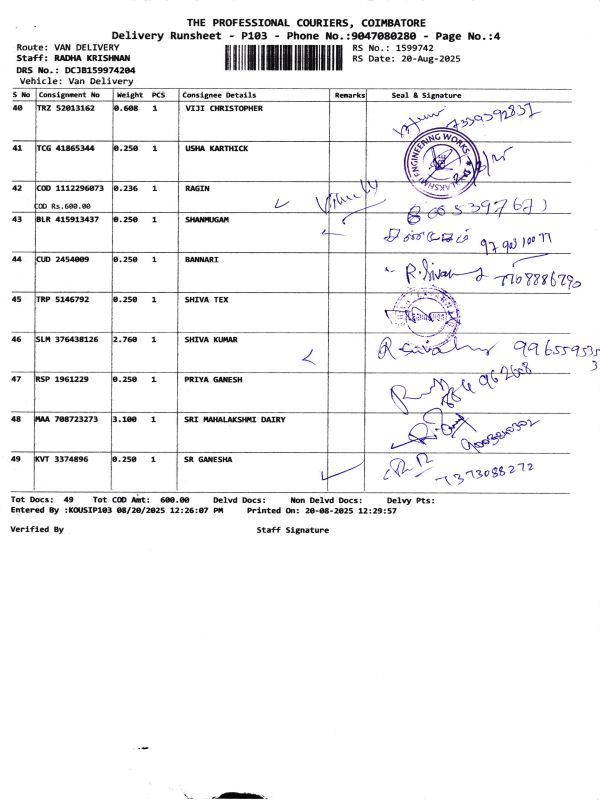 THE PROFESSIONAL COURIERS, COIMBATORE
Delivery Runsheet - P103 - Phone No.:9047080280 - Page No.:4
Route: VAN DELIVERY RS No.: 1599742
Staff: RADHA KRISHNAN RS Date: 20-Aug-2025
DRS No.: DCJB159974204
Vehicle: Van Delivery
S No Consignment No Weight PCS Consignee Details Remarks Seal & Signature
40 TRZ 52013162 0.608 1 VIJI CHRISTOPHER
7339392837
41 TCG 41865344 0.250 1 USHA KARTHICK
LAKSHMI ENGINEERING WORKS
42 COD 1112296073 0.236 1 RAGIN
COD Rs.600.00
43 BLR 415913437 0.250 1 SHANMUGAM
44 CUD 2454009 0.250 1 BANNARI
R.Siva 7708886790
45 TRP 5146792 0.250 1 SHIVA TEX
46 SLM 376438126 2.760 1 SHIVA KUMAR
47 RSP 1961229 0.250 1 PRIYA GANESH
48 MAA 708723273 3.100 1 SRI MAHALAKSHMI DAIRY
49 KVT 3374896 0.250 1 SR GANESHA
7373088272
Tot Docs: 49 Tot COD Amt: 600.00 Delvd Docs: Non Delvd Docs: Delvy Pts:
Entered By :KOUSIP103 08/20/2025 12:26:07 PM Printed On: 20-08-2025 12:29:57
Verified By Staff Signature